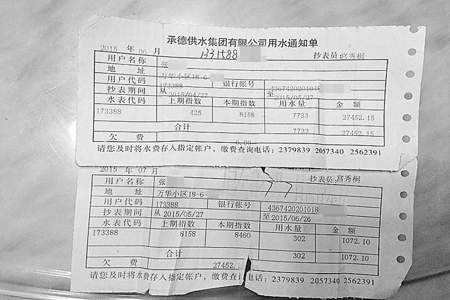 承德供水集团有限公司用水通知单
2015 年 06 月 1331588 抄表员 秀桐
用户名称 张
用户地址 万华小区18-6
用户代码 173388 银行帐号 4367420201018
抄表期间 从2015/04/27 至2015/05/27
水表代码 上期指数 本期指数 用水量 金额
173388 425 8158 7733 27452.15
合计 7733 27452.15
欠费 0.00
请您及时将水费存入指定帐户，缴费查询电话：2379839 2057340 2562391
2015 年 07 月 抄表员 秀桐
用户名称 张
用户地址 万华小区18-6
用户代码 173388 银行帐号 4367420201018
抄表期间 从2015/05/27 至2015/06/26
水表代码 上期指数 本期指数 用水量 金额
173388 8158 8460 302 1072.10
合计 302 1072.10
欠费 27452.
请您及时将水费存入指定帐户，缴费查询电话：2379839 2057340 2562391